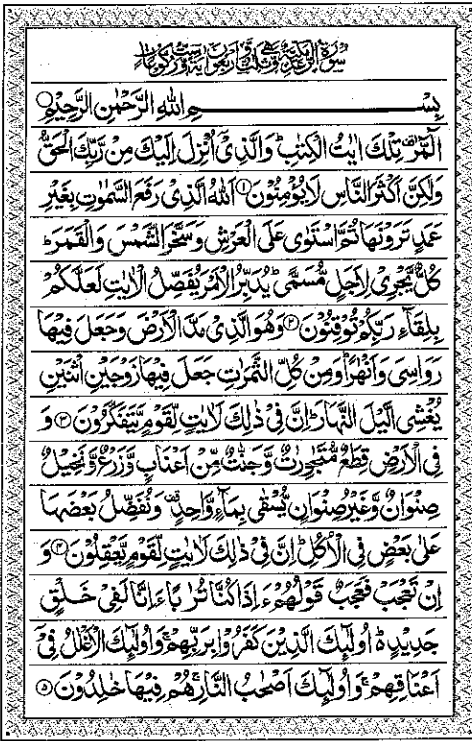 سورة الرعد مدنية وهي ثلث واربعون اية وست ركوعات
بِسْمِ اللهِ الرَّحْمٰنِ الرَّحِيْمِ
الٓمّٓرٰ تِلْكَ اٰيٰتُ الْكِتٰبِ ؕ وَالَّذِيْٓ اُنْزِلَ اِلَيْكَ مِنْ رَّبِّكَ الْحَقُّ
وَلٰكِنَّ اَكْثَرَ النَّاسِ لَا يُؤْمِنُوْنَ ۝۱ اَللهُ الَّذِيْ رَفَعَ السَّمٰوٰتِ بِغَيْرِ
عَمَدٍ تَرَوْنَهَا ثُمَّ اسْتَوٰى عَلَى الْعَرْشِ وَسَخَّرَ الشَّمْسَ وَالْقَمَرَ ؕ
كُلٌّ يَّجْرِيْ لِاَجَلٍ مُّسَمًّى ؕ يُدَبِّرُ الْاَمْرَ يُفَصِّلُ الْاٰيٰتِ لَعَلَّكُمْ
بِلِقَآءِ رَبِّكُمْ تُوْقِنُوْنَ ۝۲ وَهُوَ الَّذِيْ مَدَّ الْاَرْضَ وَجَعَلَ فِيْهَا
رَوَاسِيَ وَاَنْهٰرًا ؕ وَمِنْ كُلِّ الثَّمَرٰتِ جَعَلَ فِيْهَا زَوْجَيْنِ اثْنَيْنِ
يُغْشِي الَّيْلَ النَّهَارَ ؕ اِنَّ فِيْ ذٰلِكَ لَاٰيٰتٍ لِّقَوْمٍ يَّتَفَكَّرُوْنَ ۝۳ وَ
فِي الْاَرْضِ قِطَعٌ مُّتَجٰوِرٰتٌ وَّجَنّٰتٌ مِّنْ اَعْنَابٍ وَّزَرْعٌ وَّنَخِيْلٌ
صِنْوَانٌ وَّغَيْرُ صِنْوَانٍ يُّسْقٰى بِمَآءٍ وَّاحِدٍ ۫ وَنُفَضِّلُ بَعْضَهَا
عَلٰى بَعْضٍ فِي الْاُكُلِ ؕ اِنَّ فِيْ ذٰلِكَ لَاٰيٰتٍ لِّقَوْمٍ يَّعْقِلُوْنَ ۝۴ وَ
اِنْ تَعْجَبْ فَعَجَبٌ قَوْلُهُمْ ءَاِذَا كُنَّا تُرٰبًا ءَاِنَّا لَفِيْ خَلْقٍ
جَدِيْدٍ ؕ اُولٰٓئِكَ الَّذِيْنَ كَفَرُوْا بِرَبِّهِمْ ۚ وَاُولٰٓئِكَ الْاَغْلٰلُ فِيْٓ
اَعْنَاقِهِمْ ۚ وَاُولٰٓئِكَ اَصْحٰبُ النَّارِ ۚ هُمْ فِيْهَا خٰلِدُوْنَ ۝۵